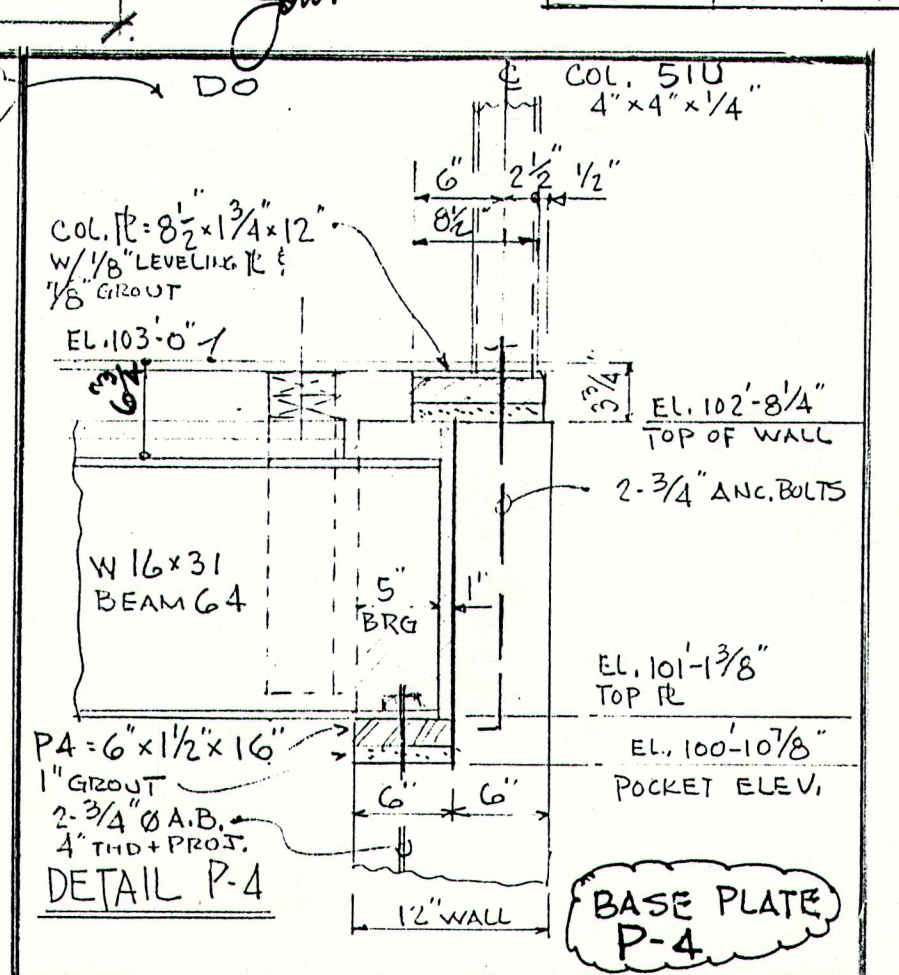 DO
℄ COL. 51U
4" x 4" x 1/4"
6" 2 1/2" 1/2"
8 1/2"
COL. ⅊ = 8 1/2" x 1 3/4" x 12"
W/ 1/8" LEVELING ⅊ &
7/8" GROUT
EL. 103'-0"
6 3/4
3 3/4"
EL. 102'-8 1/4"
TOP OF WALL
2 - 3/4" ANC. BOLTS
W 16 x 31
BEAM 64
5"
BRG
1"
EL. 101'-1 3/8"
TOP ⅊
P4 = 6" x 1 1/2" x 16"
1" GROUT
EL. 100'-10 7/8"
POCKET ELEV.
2 - 3/4" Ø A.B.
4" THD + PROJ.
6" 6"
DETAIL P-4
12" WALL
BASE PLATE
P-4